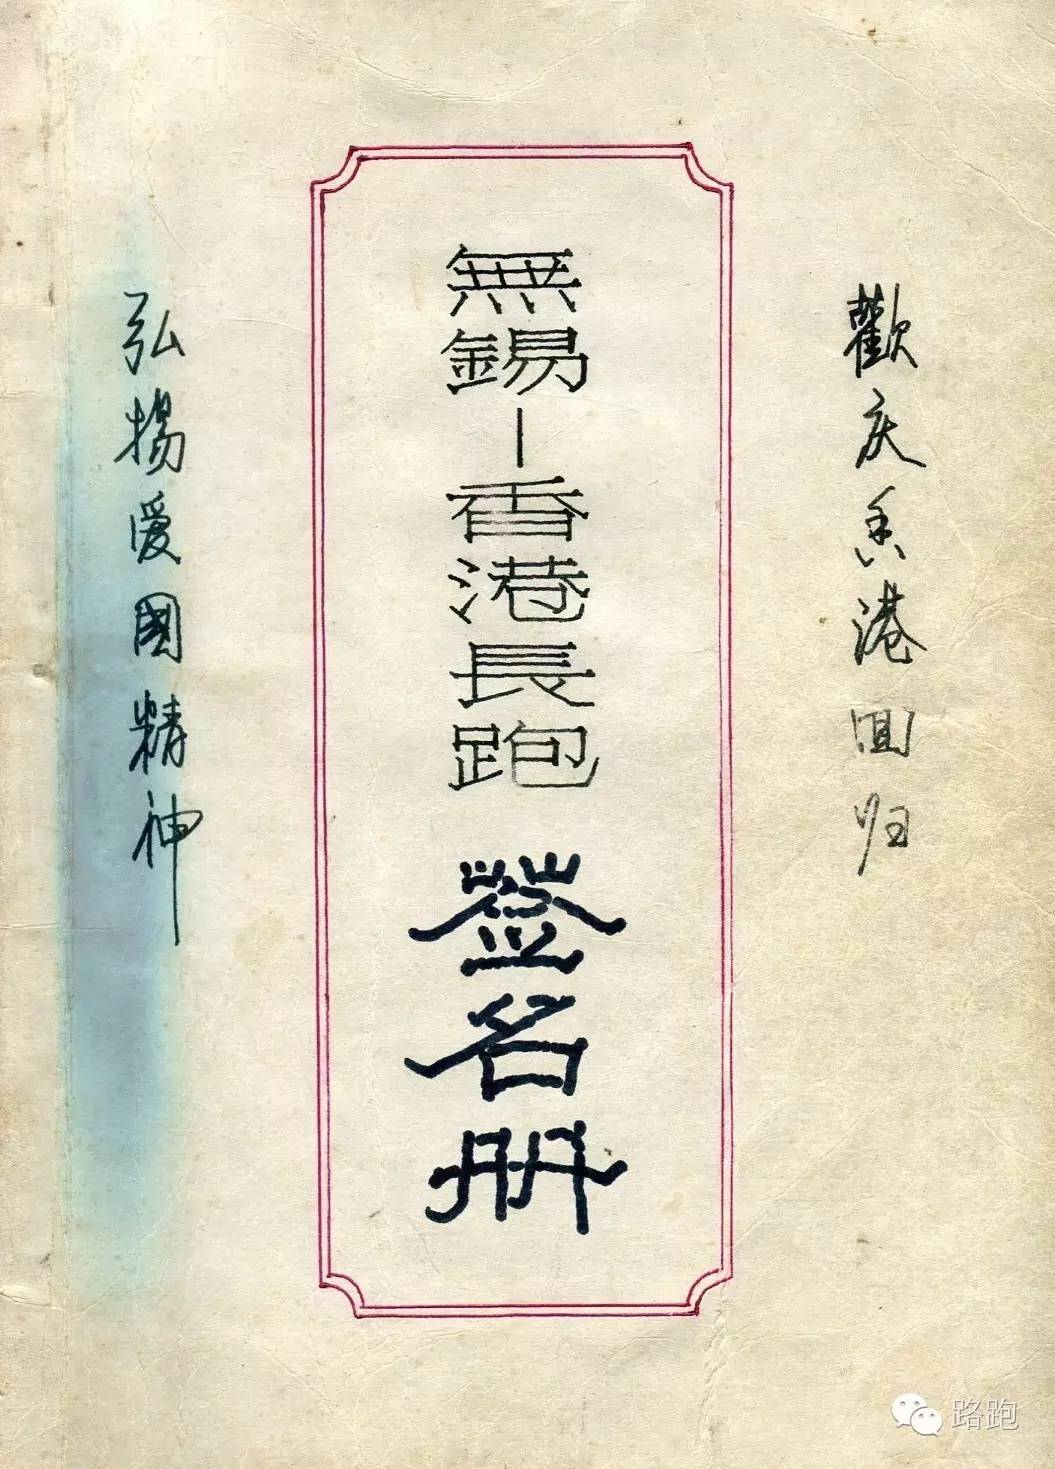 歡庆香港回归
無錫-香港長跑
签名册
弘揚爱國精神
路跑